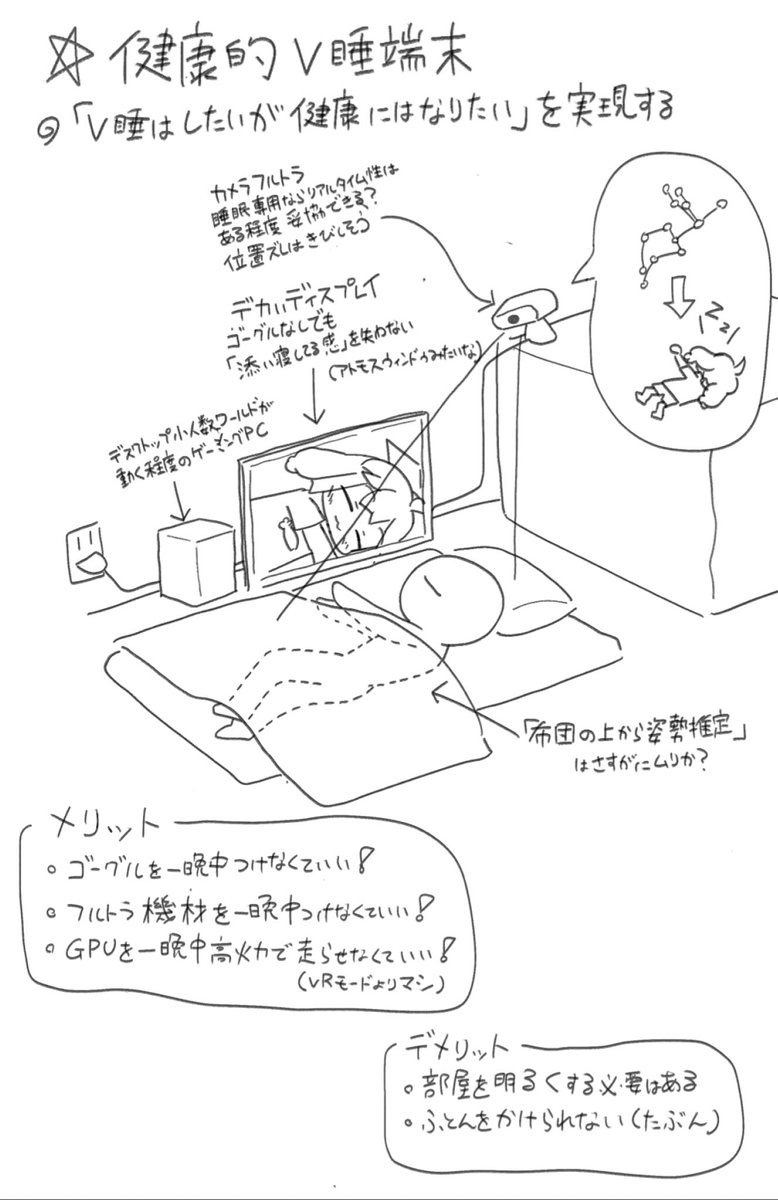 ☆ 健康的V睡端末
◎「V睡はしたいが健康にはなりたい」を実現する
カメラフルトラ
睡眠専用ならリアルタイム性は
ある程度妥協できる?
位置ズレはきびしそう
デカいディスプレイ
ゴーグルなしでも
「添い寝してる感」を失わない
(アトモスウィンドウみたいな)
デスクトップ小人数ワールドが
動く程度のゲーミングPC
Zzz
「布団の上から姿勢推定」
はさすがにムリか?
メリット
○ ゴーグルを一晩中つけなくていい!
○ フルトラ機材を一晩中つけなくていい!
○ GPUを一晩中高火力で走らせなくていい!
(VRモードよりマシ)
デメリット
○ 部屋を明るくする必要はある
○ ふとんをかけられない(たぶん)